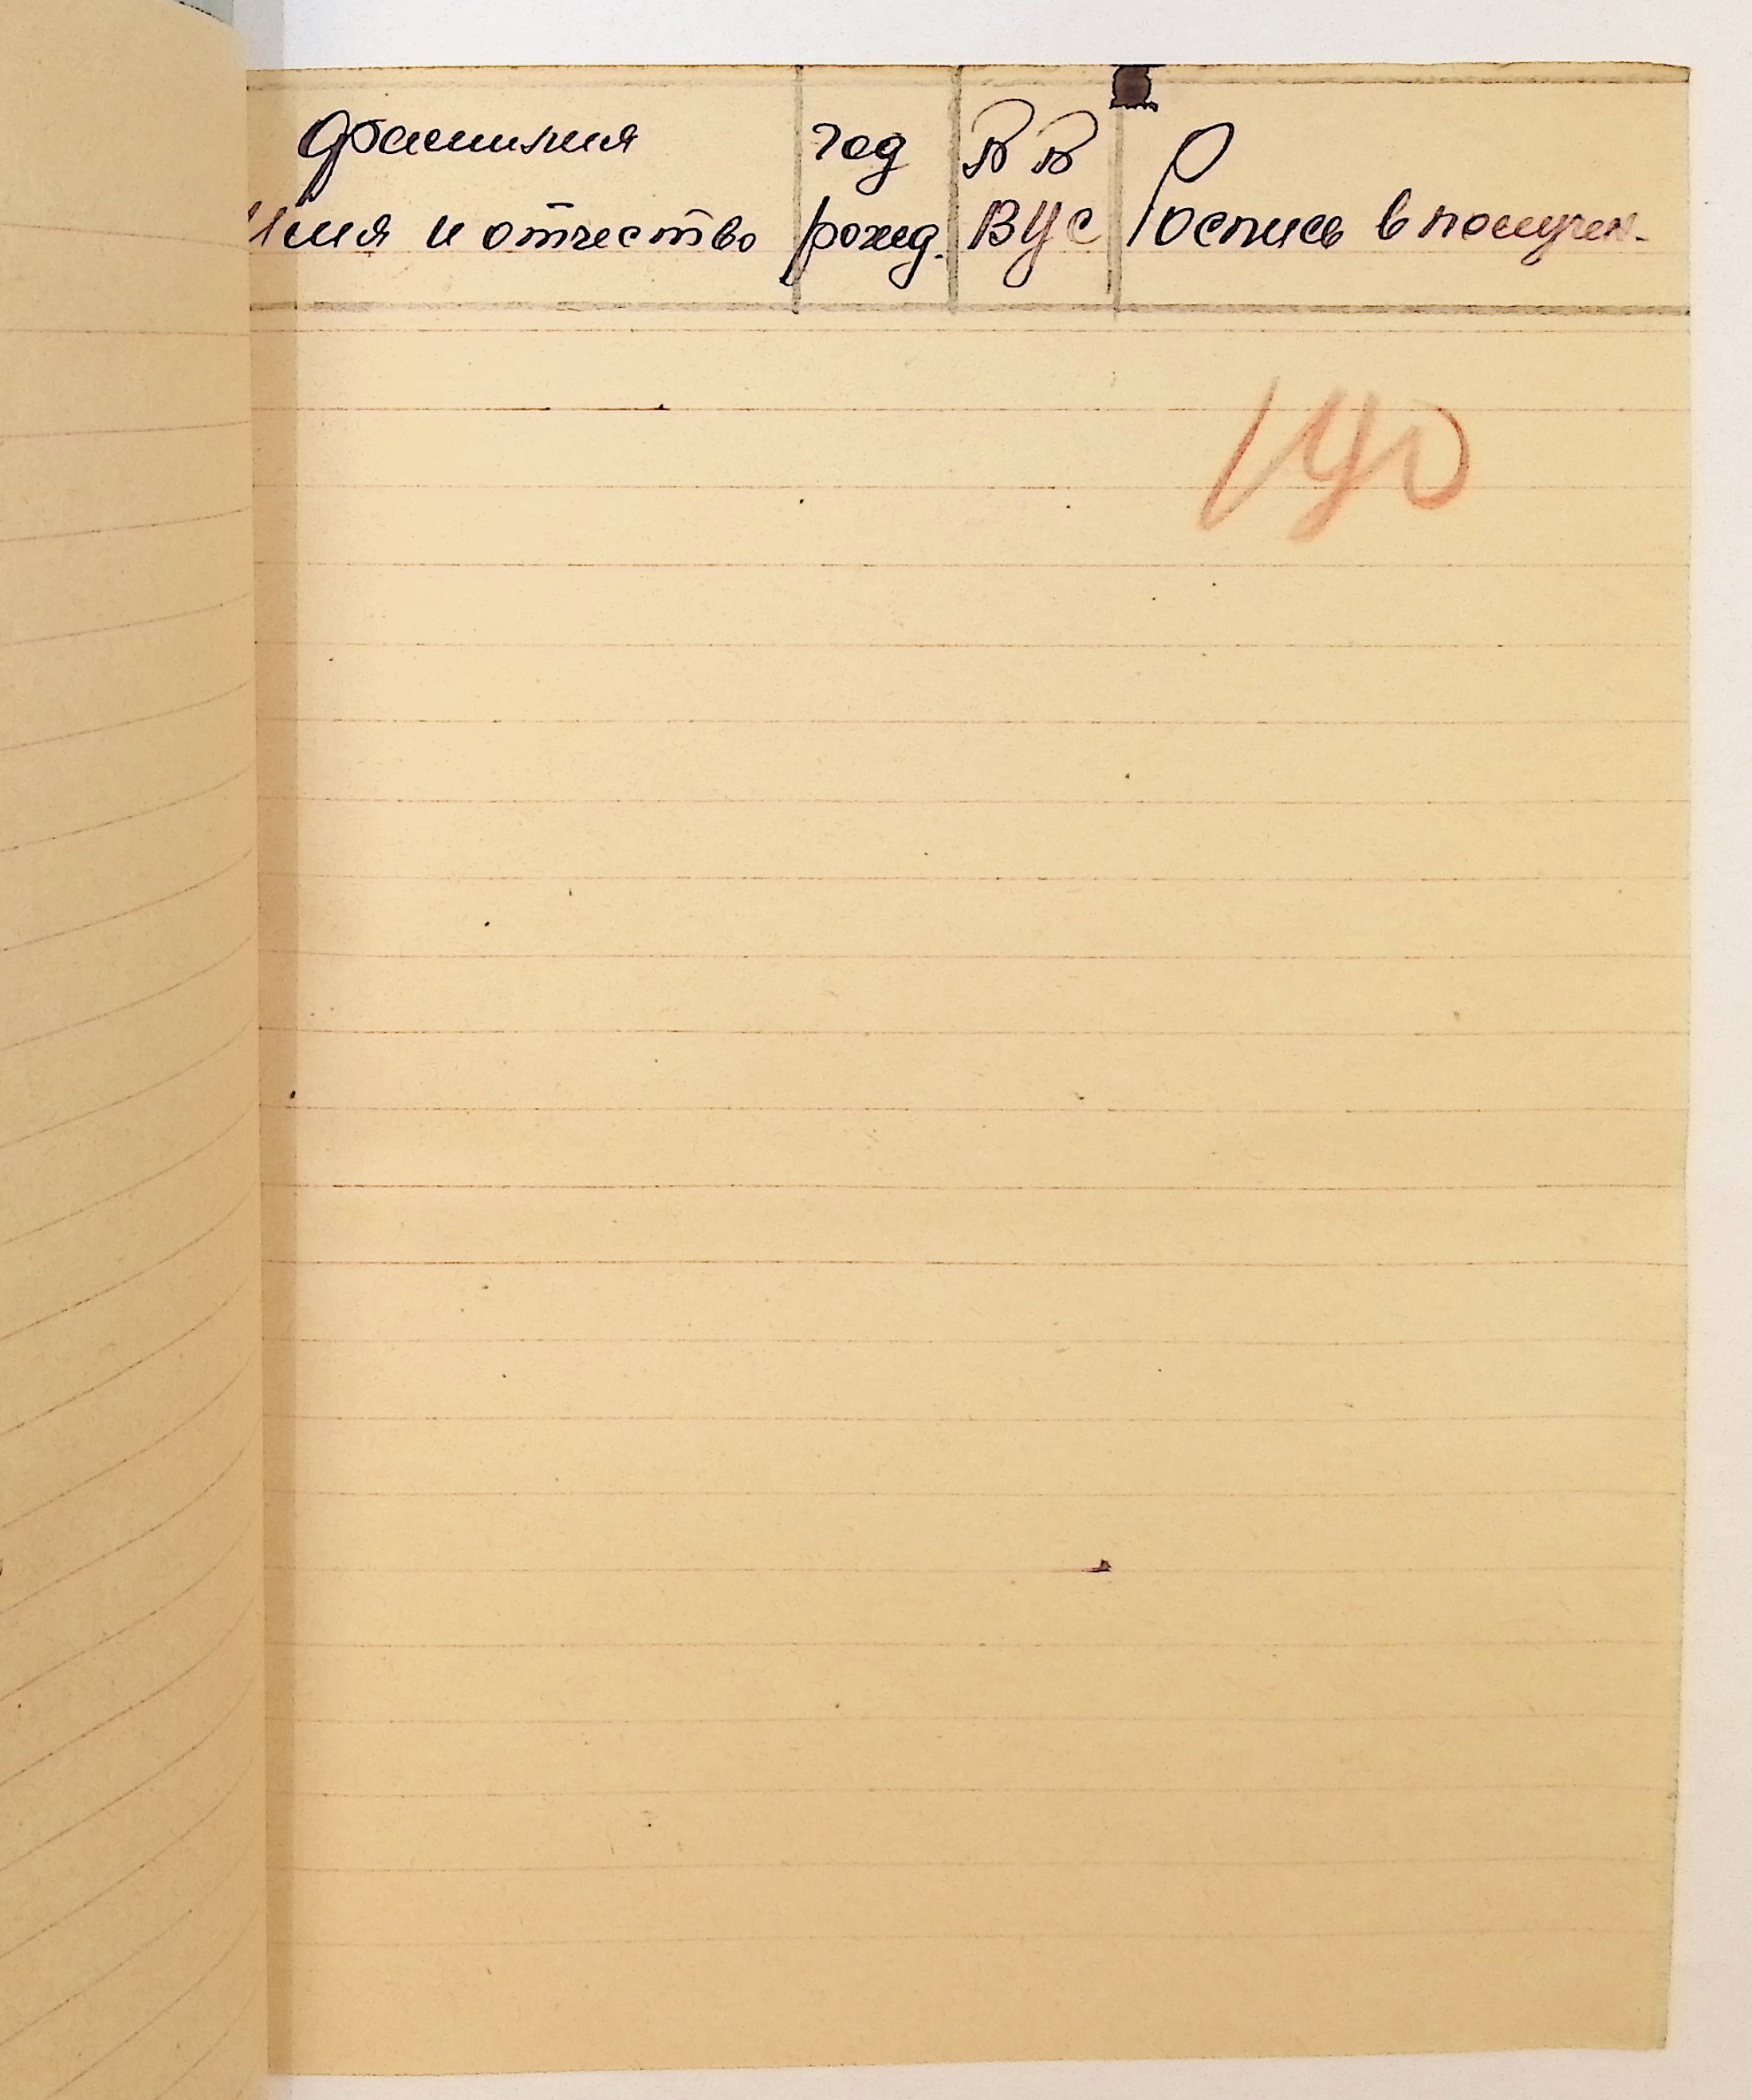 Фамилия год ВВ
Имя и отчество рожд. ВУС Роспись в получен.
140